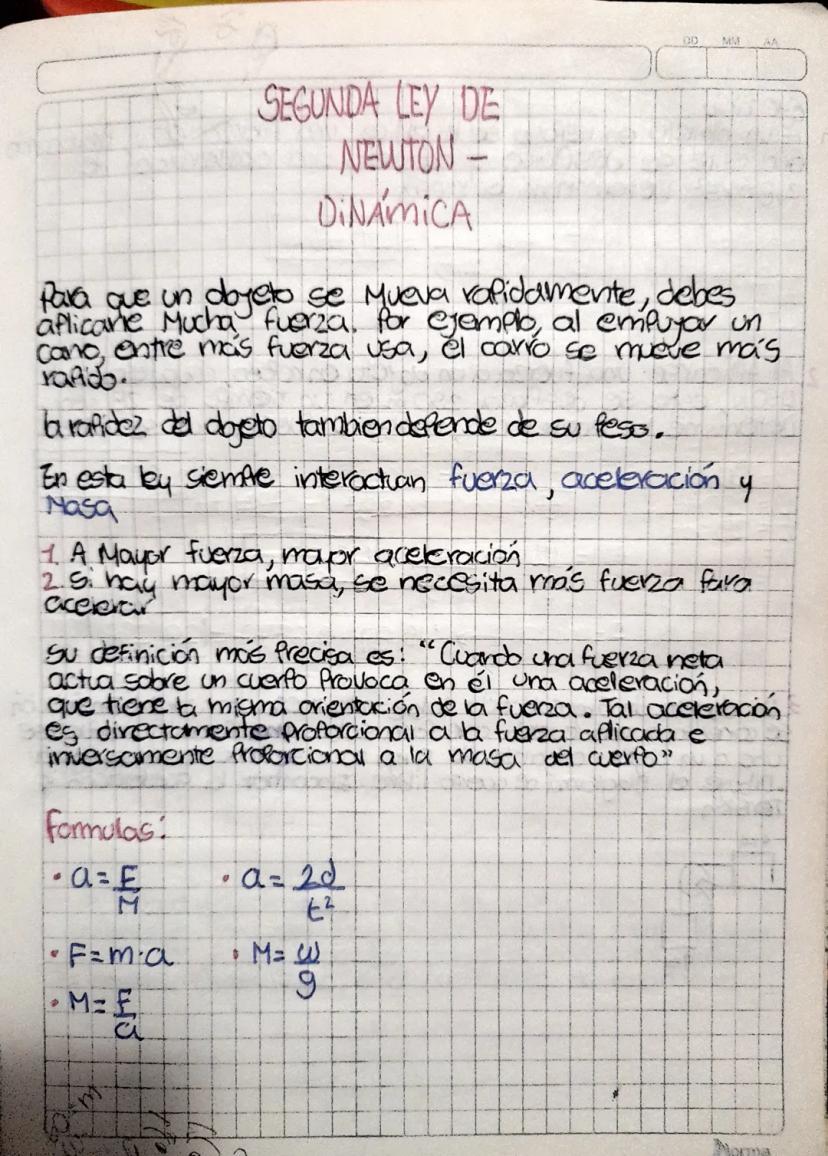 DD MM AA
SEGUNDA LEY DE
NEWTON -
DINÁMICA
Para que un objeto se Mueva rapidamente, debes
aplicarle Mucha fuerza. Por ejemplo, al empujar un
carro, entre más fuerza usa, el carro se mueve más
rapido.
la rapidez del objeto tambien depende de su peso.
En esta ley siempre interactuan fuerza, aceleración y
Masa
1. A Mayor fuerza, mayor aceleración
2. Si hay mayor masa, se necesita más fuerza para
acelerar
su definición más precisa es: "Cuando una fuerza neta
actua sobre un cuerpo Provoca en él una aceleración,
que tiene la misma orientación de la fuerza. Tal aceleración
es directamente proporcional a la fuerza aplicada e
inversamente proporcional a la masa del cuerpo"
formulas:
• a = F/M • a = 2d/t²
• F = m·a • M = w/g
• M = F/a
Norma